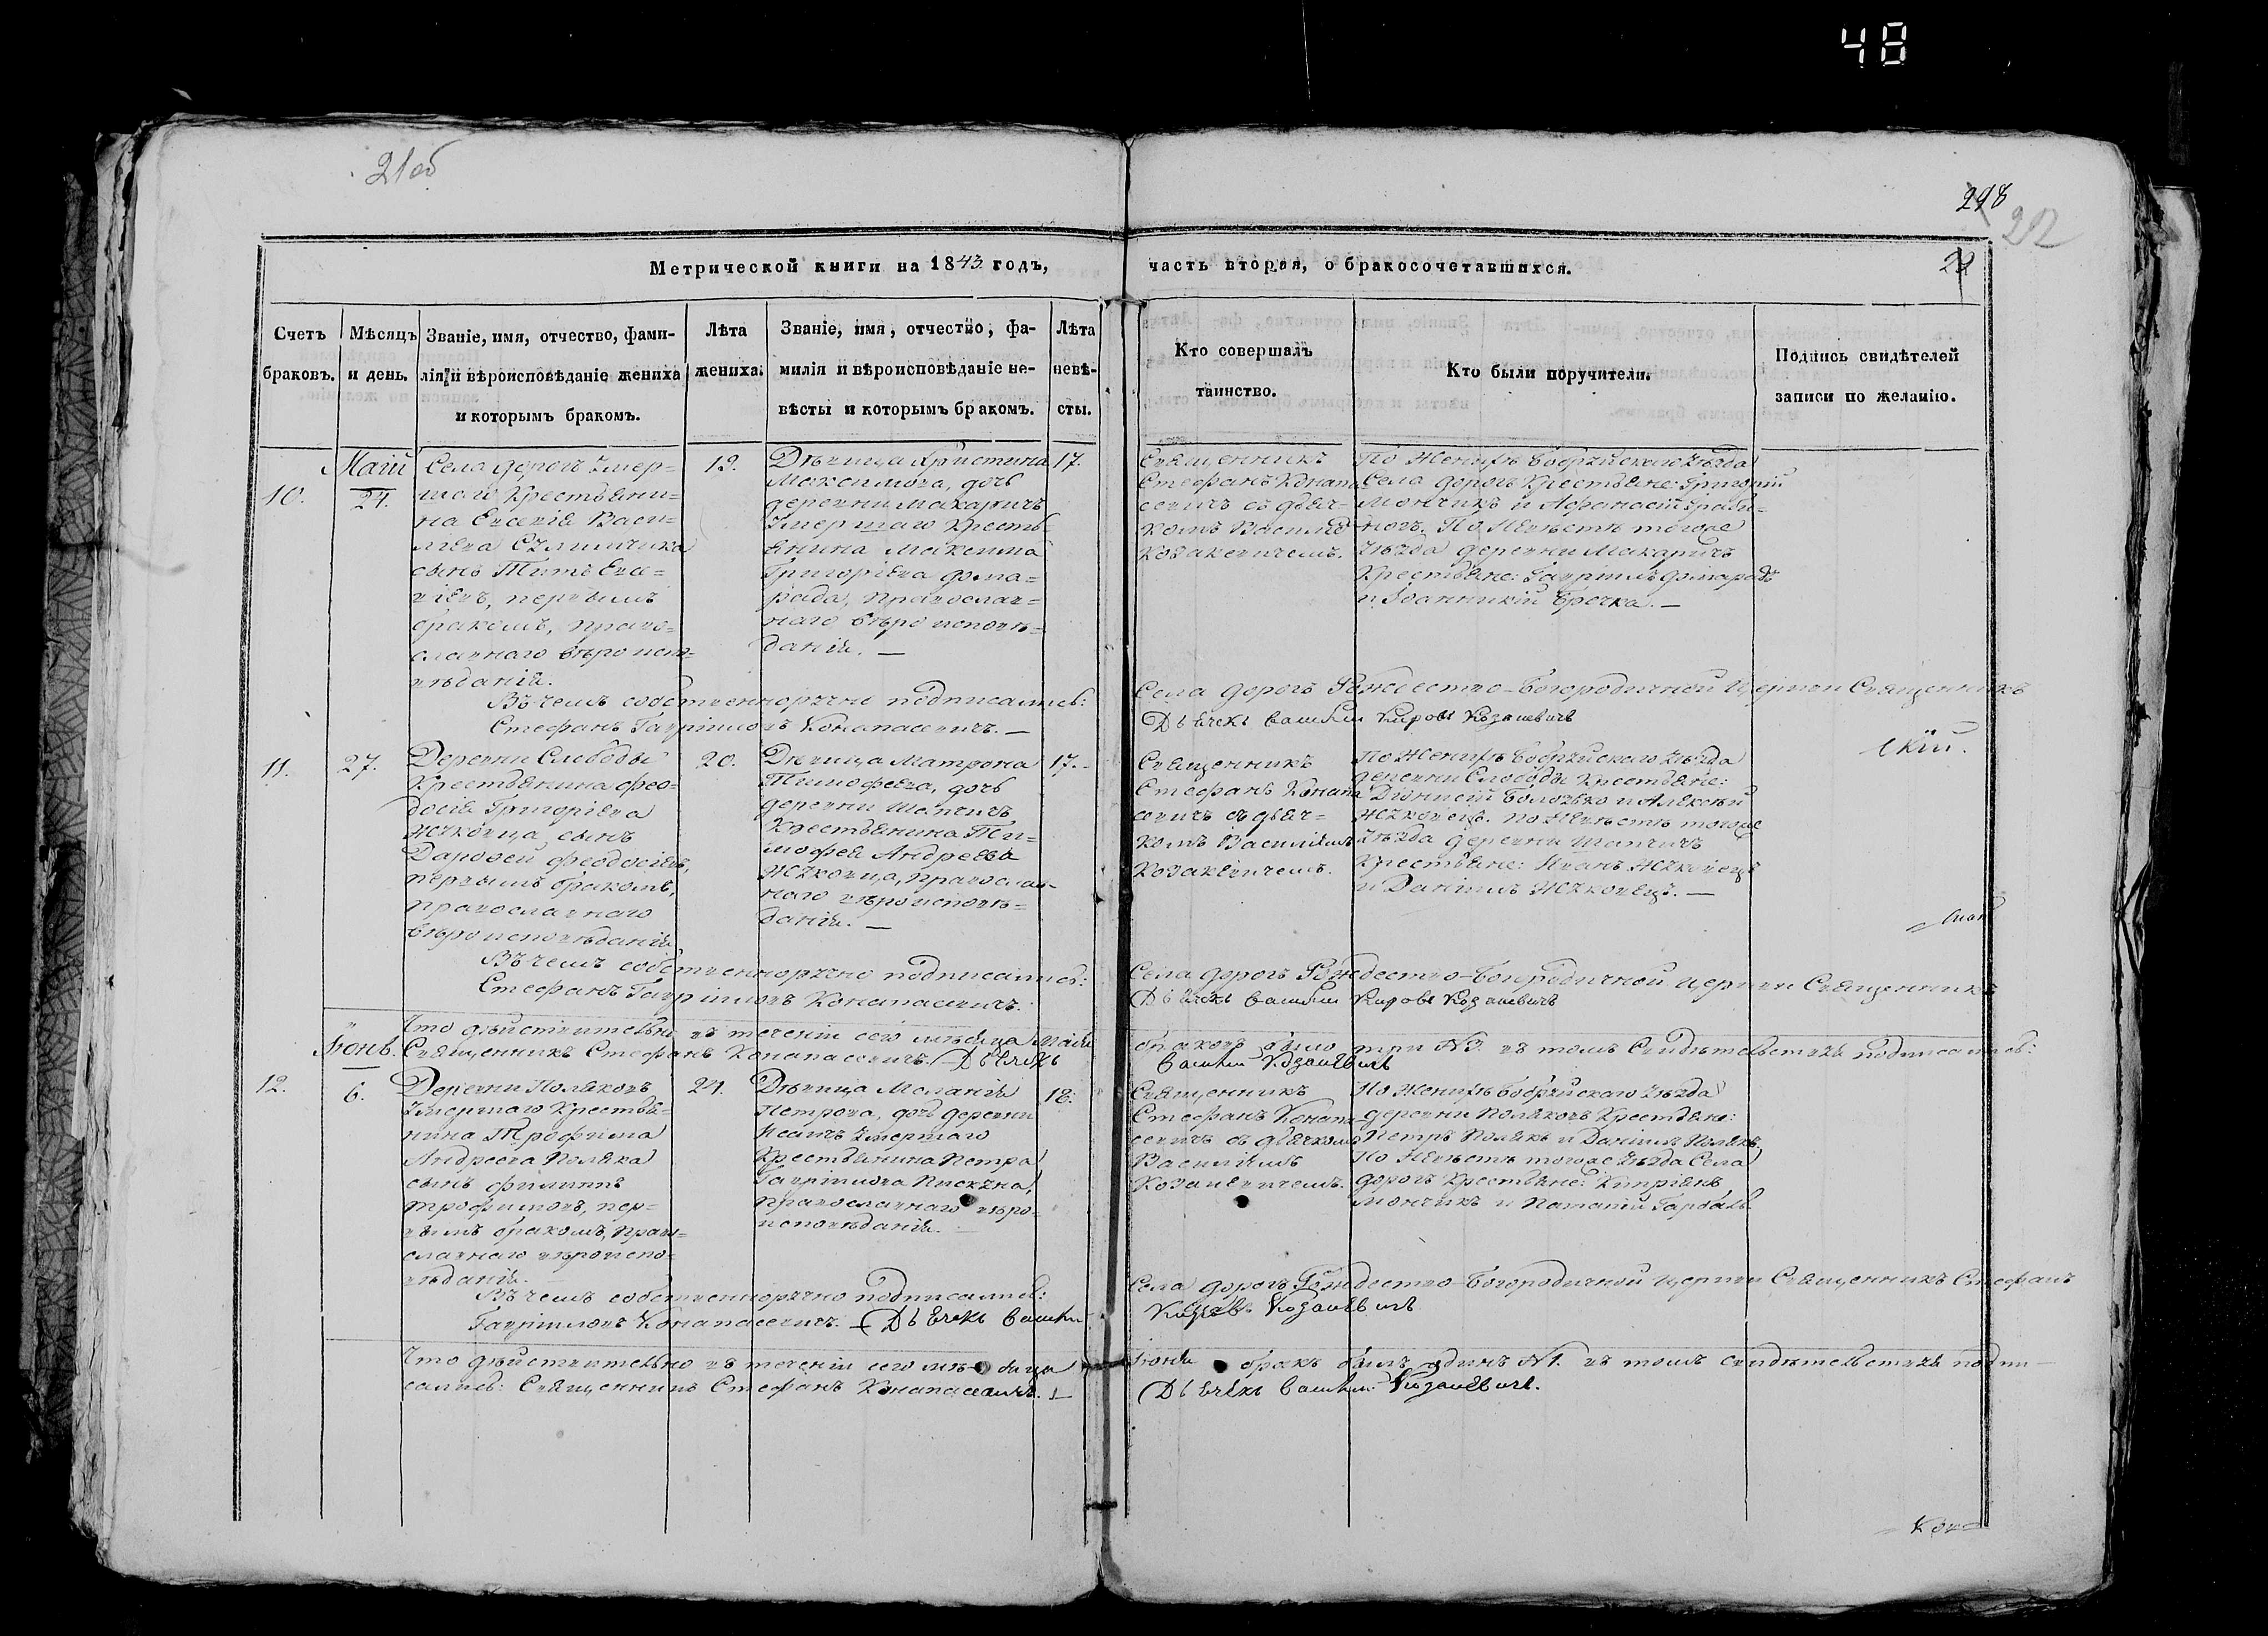 48
21об
298
22
Метрической книги на 1843 годъ, часть вторая, о бракосочетавшихся.
Счетъ браковъ.
Мѣсяцъ и день.
Званіе, имя, отчество, фами-
лія и вѣроисповѣданіе жениха
и которымъ бракомъ.
Лѣта
жениха.
Званіе, имя, отчество, фа-
милія и вѣроисповѣданіе не-
вѣсты и которымъ бракомъ.
Лѣта
невѣ-
сты.
Кто совершалъ
таинство.
Кто были поручители.
Подпись свидѣтелей
записи по желанію.
10.
Маій
24.
Села дорогъ умер-
шаго Крестьяни-
на Евсевія Васи-
лиева
сынъ Титъ Евсе-
віевъ, первымъ
бракомъ, право-
славнаго вѣроиспо-
вѣданія.
19.
Дѣвица Христина
Максимова, дочь
деревни Макаричъ
Умершаго Кресть-
янина Максима
Григоріева Дома-
рада, православ-
наго вѣроисповѣ-
данія. —
17.
Священникъ
Стефанъ Конапа-
севичъ съ дьяч-
комъ Василіе
Козакевичемъ.
По Женихѣ Бобруйскаго уѣзда
Села дорогъ Крестьяне: Григорій
Мончикъ и Афанасій
По Невѣстѣ тогоже
уѣзда деревни Макаричъ
Крестьяне: Гавріилъ Домарадъ
и Іоанникій —
Въ чемъ собственноручно подписались: Села дорогъ Рождество-Богородичной Церкви Священникъ
Стефанъ Гавріиловъ Конапасевичъ. — Дьячекъ Козакевичъ
11.
27.
Деревни Слободы
Крестьянина Фео-
досія Григоріева
Жуковца сынъ
Дарофей Феодосіевъ,
первымъ бракомъ,
православнаго
вѣроисповѣданія
20.
Дѣвица Матрона
Тимофеева, дочь
деревни
Крестьянина Ти-
мофея Андреева
Жуковца, православ-
наго вѣроисповѣ-
данія. —
17.
Священникъ
Стефанъ Конапа-
севичъ съ дьяч-
комъ Василіемъ
Козакевичемъ.
По Женихѣ Бобруйскаго уѣзда
деревни Слободы Крестьяне:
Діонисій и Алексѣй
Жуковецъ. По Невѣстѣ тогоже
уѣзда деревни
Крестьяне: Иванъ Жуковецъ
и Даніилъ Жуковецъ. —
Въ чемъ собственноручно подписались: Села дорогъ Рождество-Богородичной церкви Священникъ
Стефанъ Гавріиловъ Конапасевичъ. Дьячекъ Козакевичъ
Что дѣйствительно въ теченіи сего мѣсяца Маія браковъ было три №3. въ томъ Свидѣтельствуя подписались:
Священникъ Стефанъ Конапасевичъ. Дьячекъ Козакевичъ
12.
Іюнь.
6.
Деревни Поляковъ
умершаго Крестья-
нина Трофима
Андреева Поляка
сынъ Филиппъ
Трофимовъ, пер-
вымъ бракомъ, право-
славнаго вѣроиспо-
вѣданія.
24.
Дѣвица Меланія
Петрова, дочь деревни
умершаго
Крестьянина Петра
Гавріилова Пискуна,
православнаго вѣро-
исповѣданія.
18.
Священникъ
Стефанъ Конапа-
севичъ съ дьячкомъ
Василіемъ
Козакевичемъ.
По Женихѣ Бобруйскаго уѣзда
деревни Поляковъ Крестьяне:
Петръ Полякъ и Даніилъ Полякъ,
По Невѣстѣ тогоже уѣзда Села
дорогъ Крестьяне: Кипріянъ
Мончикъ и
Въ чемъ собственноручно подписались: Села дорогъ Рождество-Богородичной церкви Священникъ Стефанъ
Гавріиловъ Конапасевичъ. — Дьячекъ Козакевичъ
Что дѣйствительно въ теченіи сего мѣсяца Іюня бракъ былъ одинъ №1. въ томъ свидѣтельствуя подпи-
сались: Священникъ Стефанъ Конапасевичъ. Дьячекъ Козакевичъ.